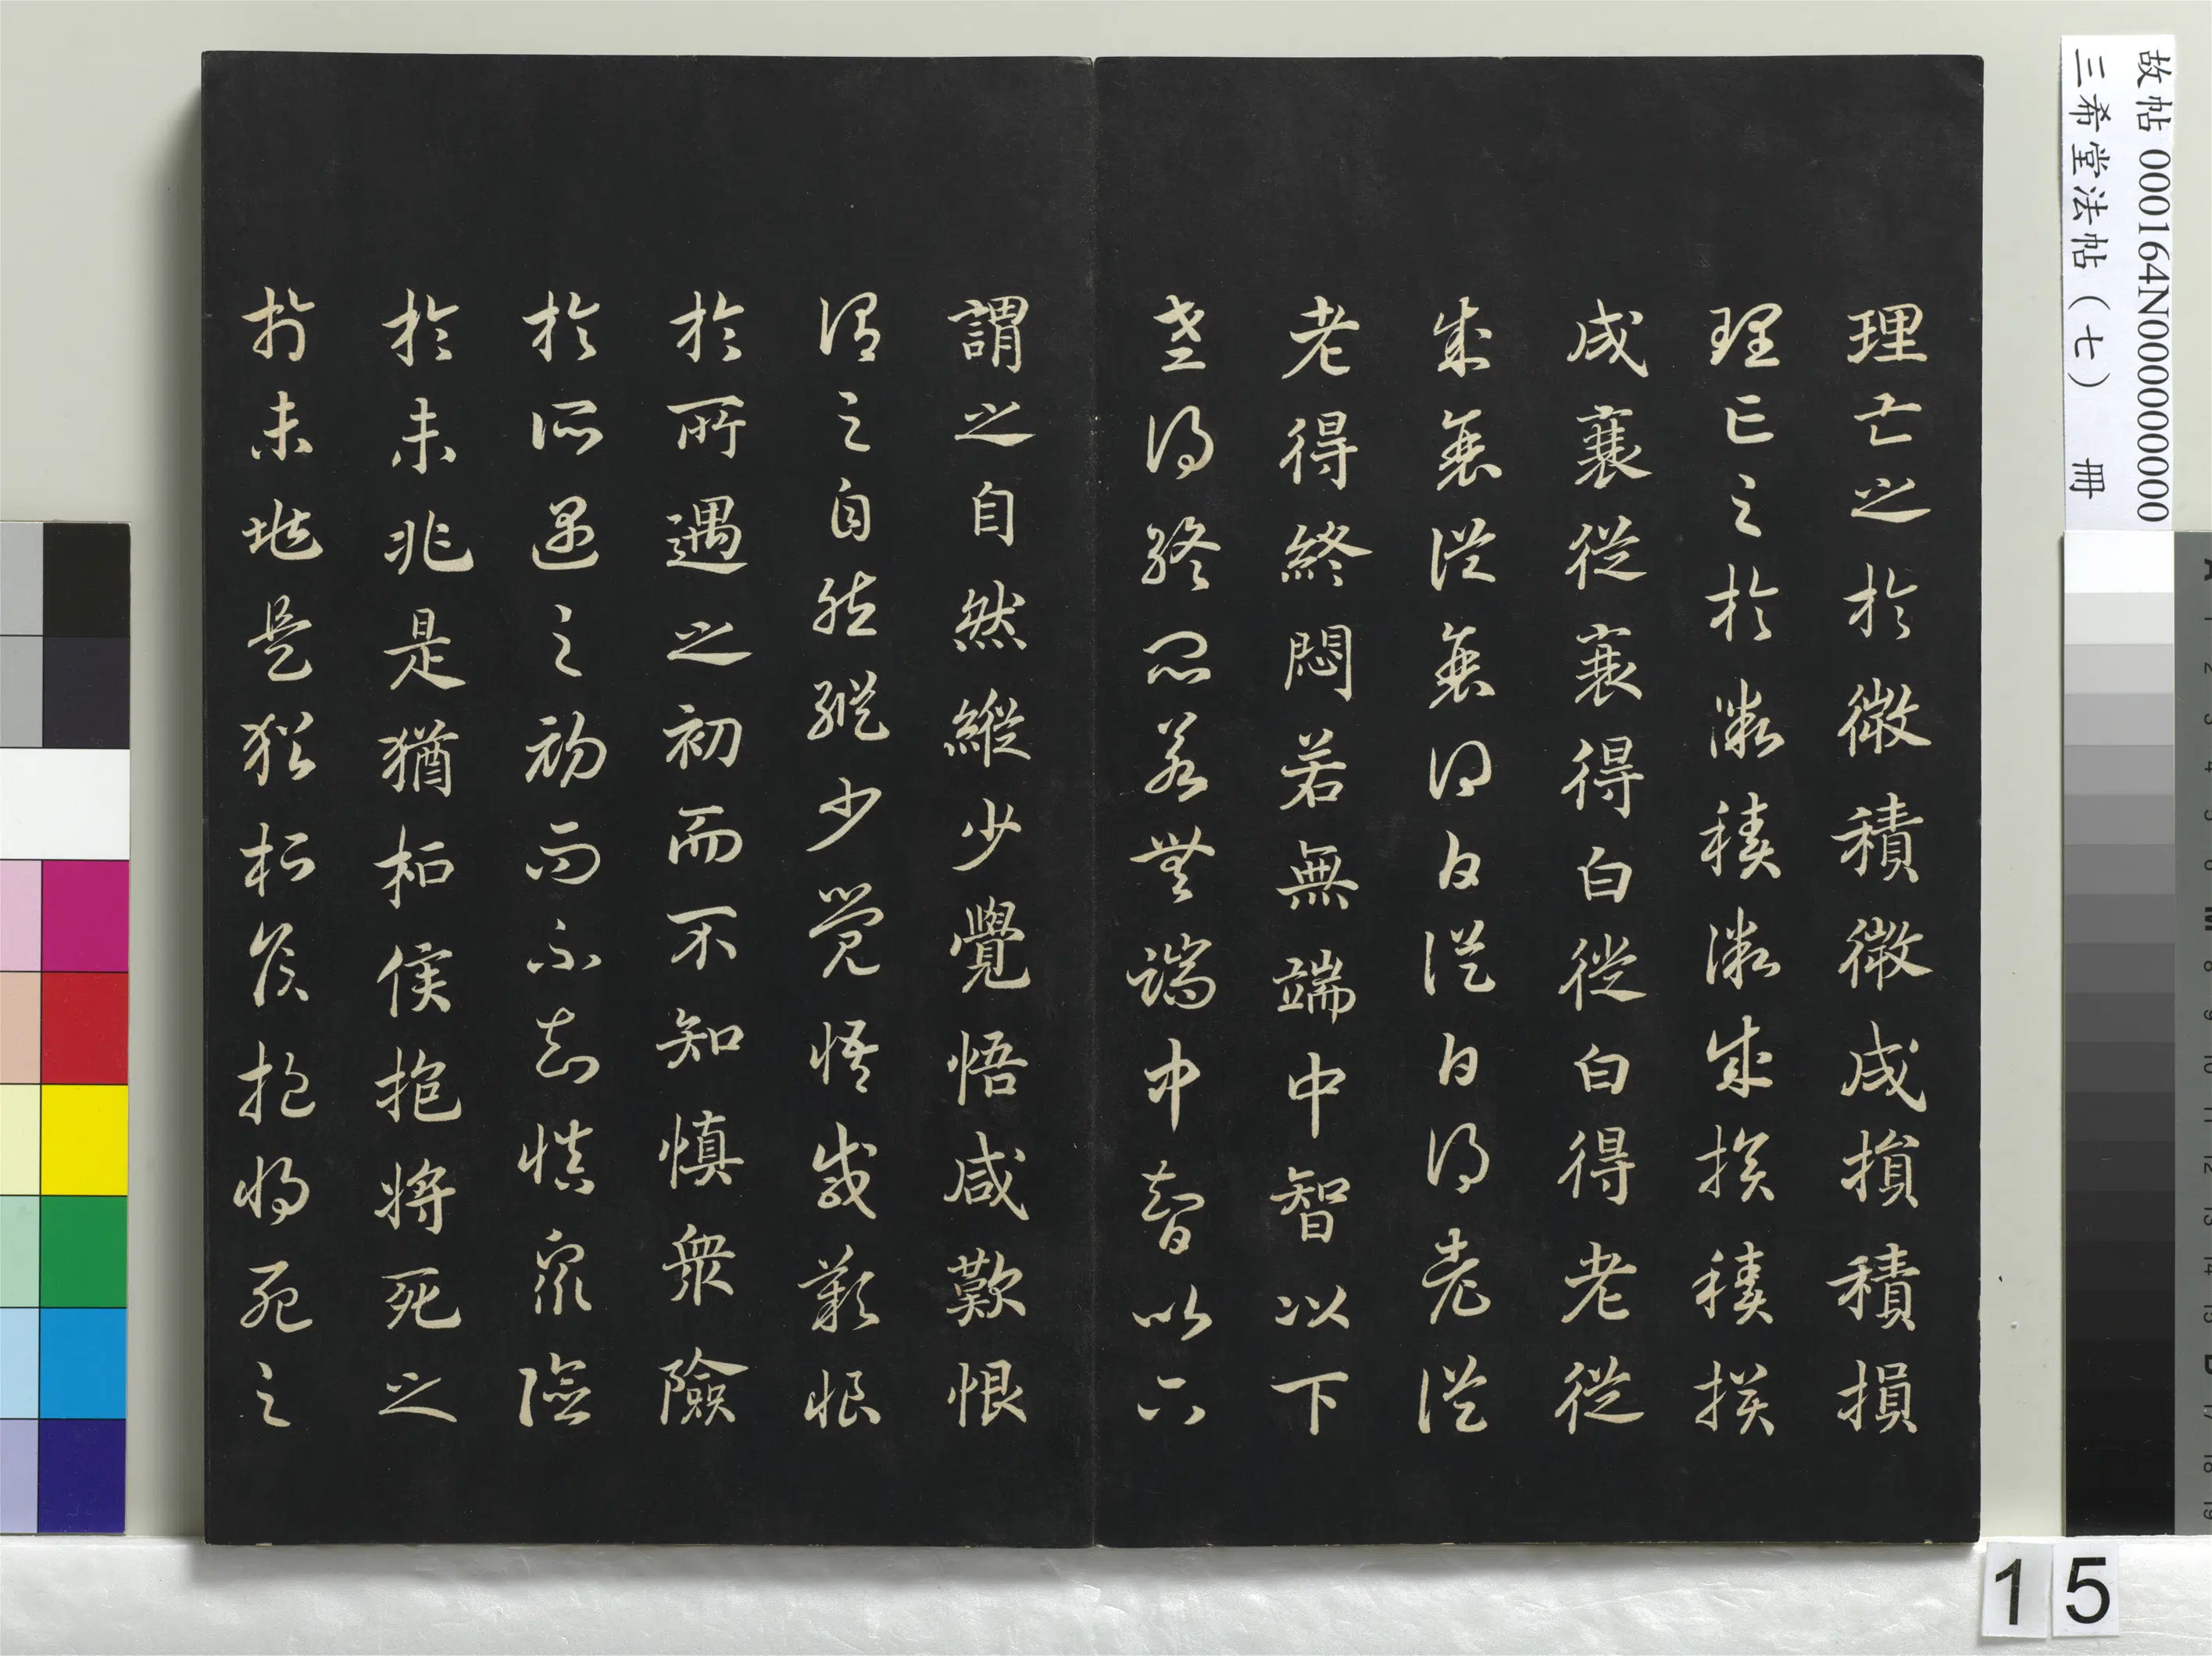 理亡之於微積微成損積損
理亡之於微積微成損積損
成衰從衰得白從白得老從
成衰從衰得白從白得老從
老得終悶若無端中智以下
老得終悶若無端中智以下
謂之自然縱少覺悟咸歎恨
謂之自然縱少覺悟咸歎恨
於所遇之初而不知慎眾險
於所遇之初而不知慎眾險
於未兆是猶桓侯抱將死之
於未兆是猶桓侯抱將死之
故帖 000164N000000000
三希堂法帖（七） 冊
15